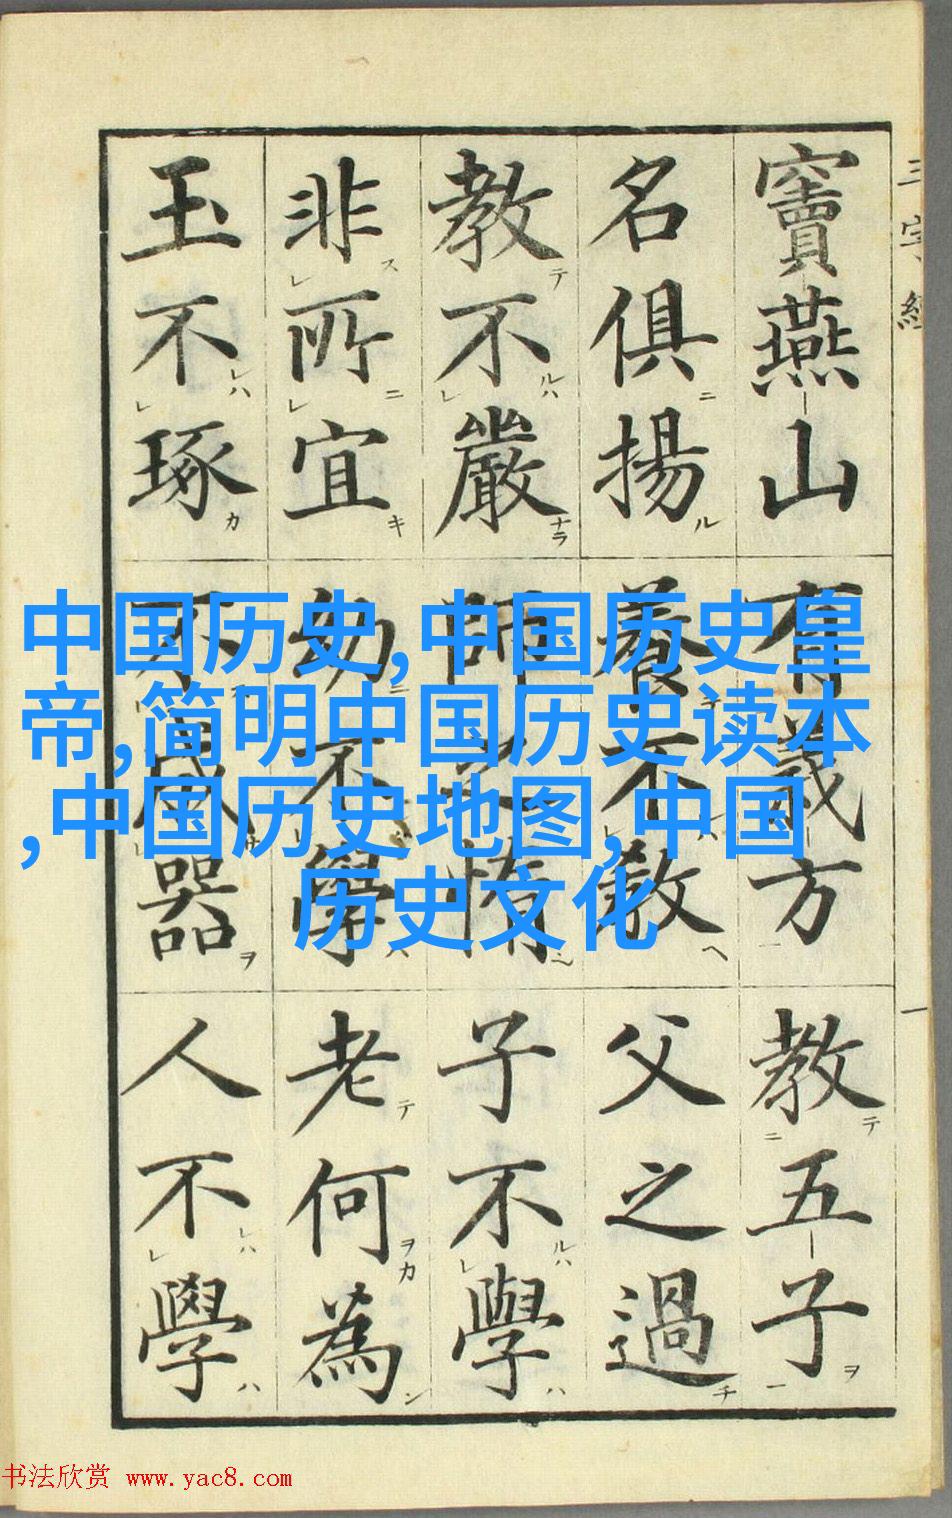 三字經
一
竇燕山有義方教五子
名俱揚養不教父之過
教不嚴師之惰子不學
非所宜幼不學老何為
玉不琢不成器人不學
中国历史,中国历史皇
帝,简明中国历史读本
,中国历史地图,中国
历史文化
书法欣赏 www.yac8.com